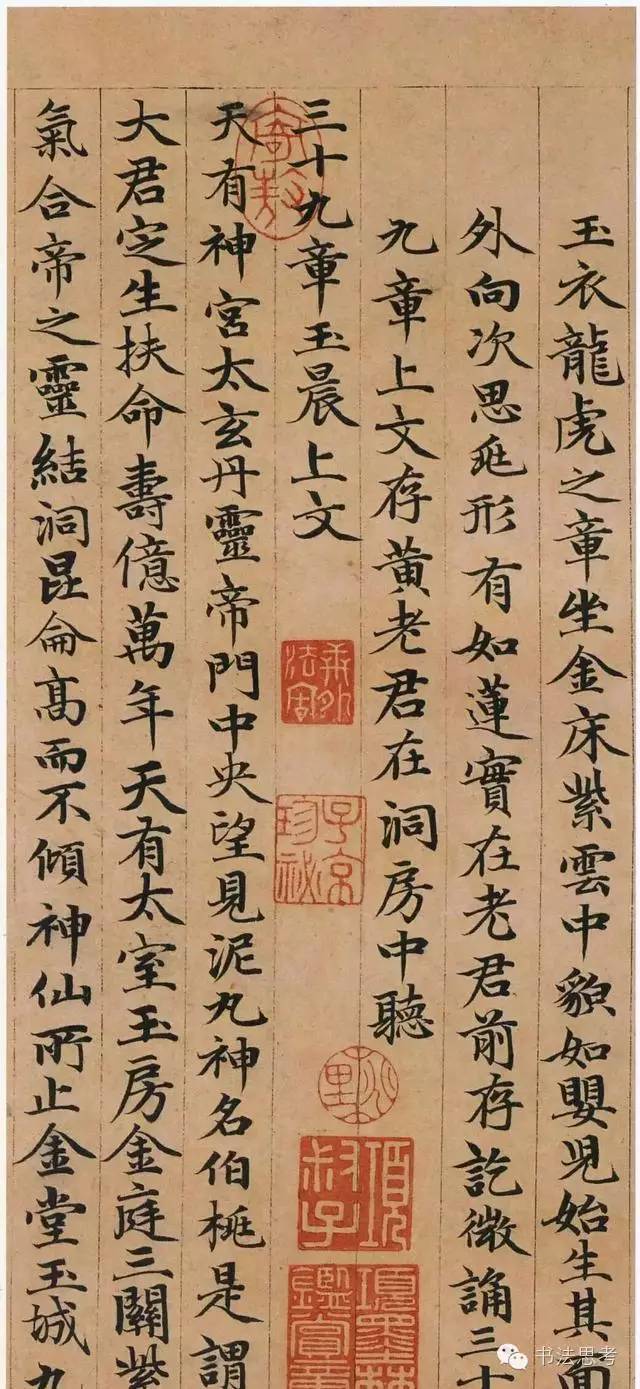 玉衣龍虎之章坐金床紫雲中貌如嬰兒始生其面
外向次思兆形有如蓮實在老君前存訖微誦三十
九章上文存黄老君在洞房中聽
三十九章玉晨上文
天有神宮太玄丹靈帝門中央望見泥丸神名伯桃是謂
大君定生扶命壽億萬年天有太室玉房金庭三關紫
氣合帝之靈結洞昆侖高而不傾神仙所止金堂玉城九
奇敖
子京
珍祕
桃
里
項
叔子
項墨林
鑑賞章
书法思考